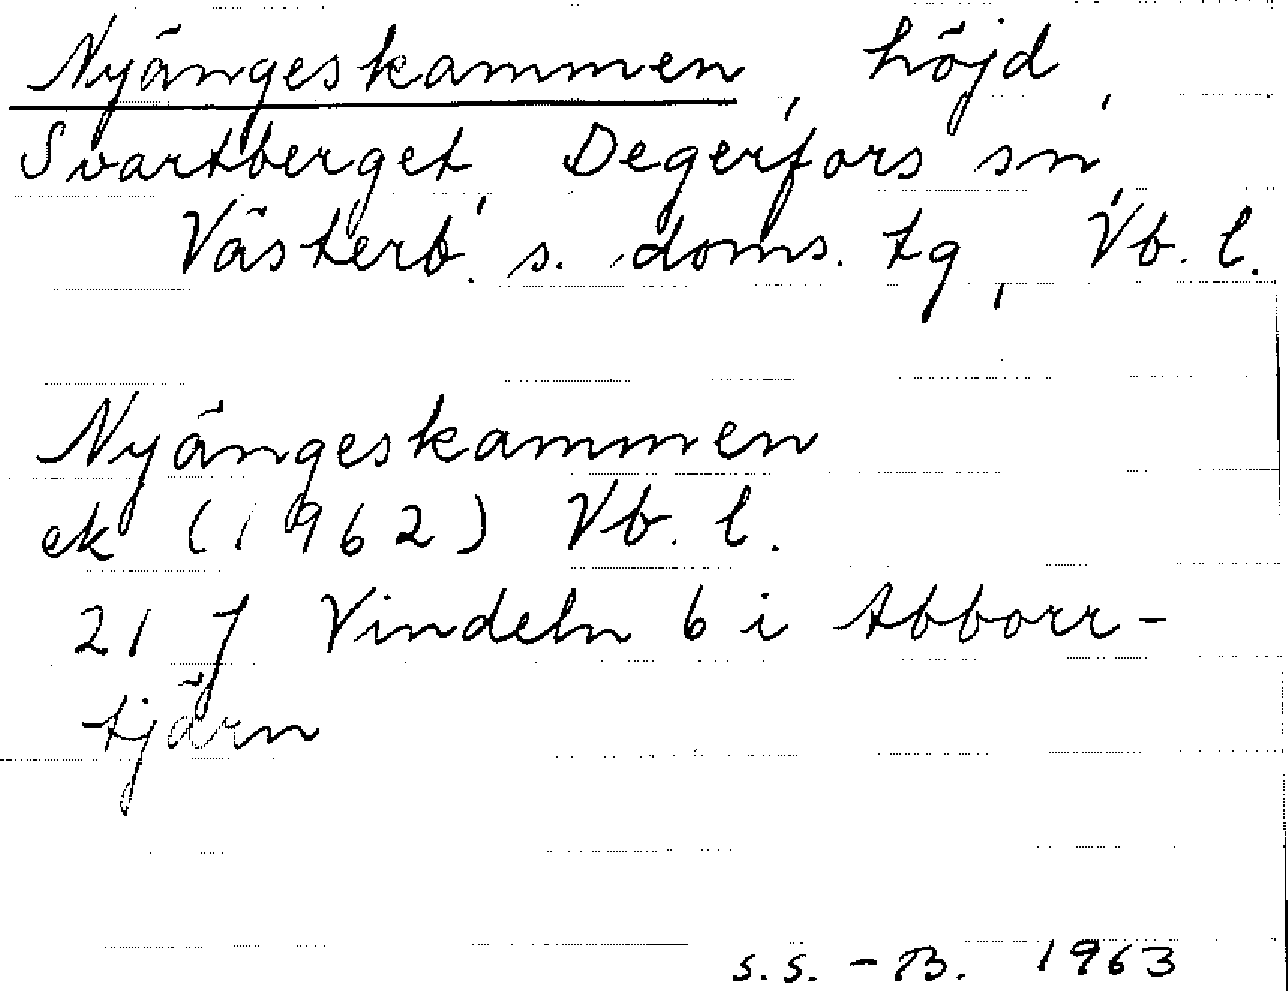 Nyängeskammen, höjd,
Svartberget, Degerfors sn,
Västerb. s. doms. tg, Vb. l.
Nyängeskammen
ek (1962) Vb. l.
21 J Vindeln 6 i Abborr-
tjärn
s.s. - B. 1963